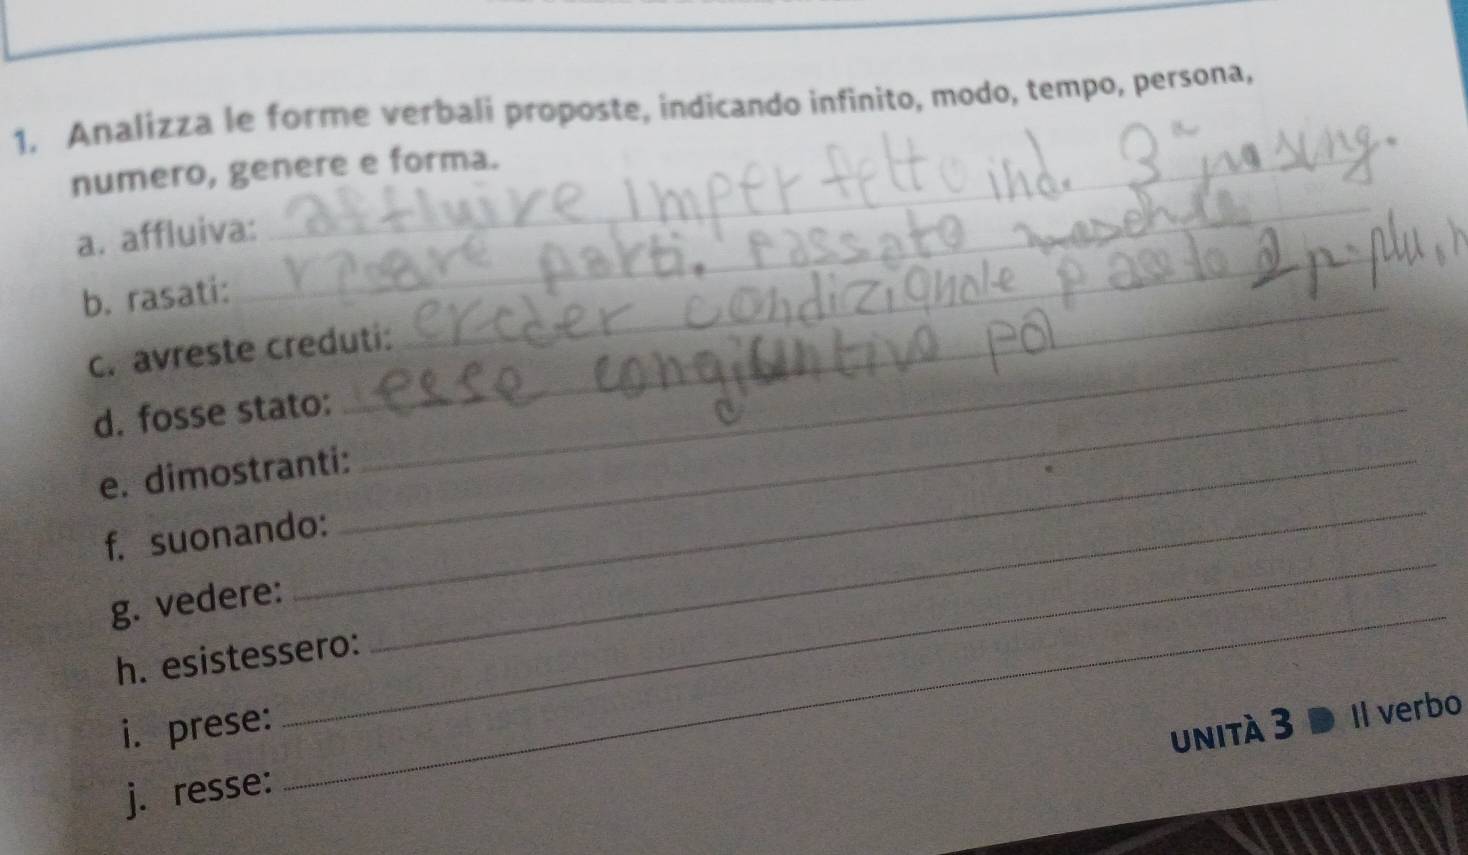 1. Analizza le forme verbali proposte, indicando infinito, modo, tempo, persona,
numero, genere e forma.
a. affluiva: affluire imperfetto ind. 3ª sing.
b. rasati: parti. passato
c. avreste creduti: creder condizionale 2 p. plu.
d. fosse stato: esse
e. dimostranti:
f. suonando:
g. vedere:
h. esistessero:
i. prese:
j. resse:
UNITÀ 3 Il verbo